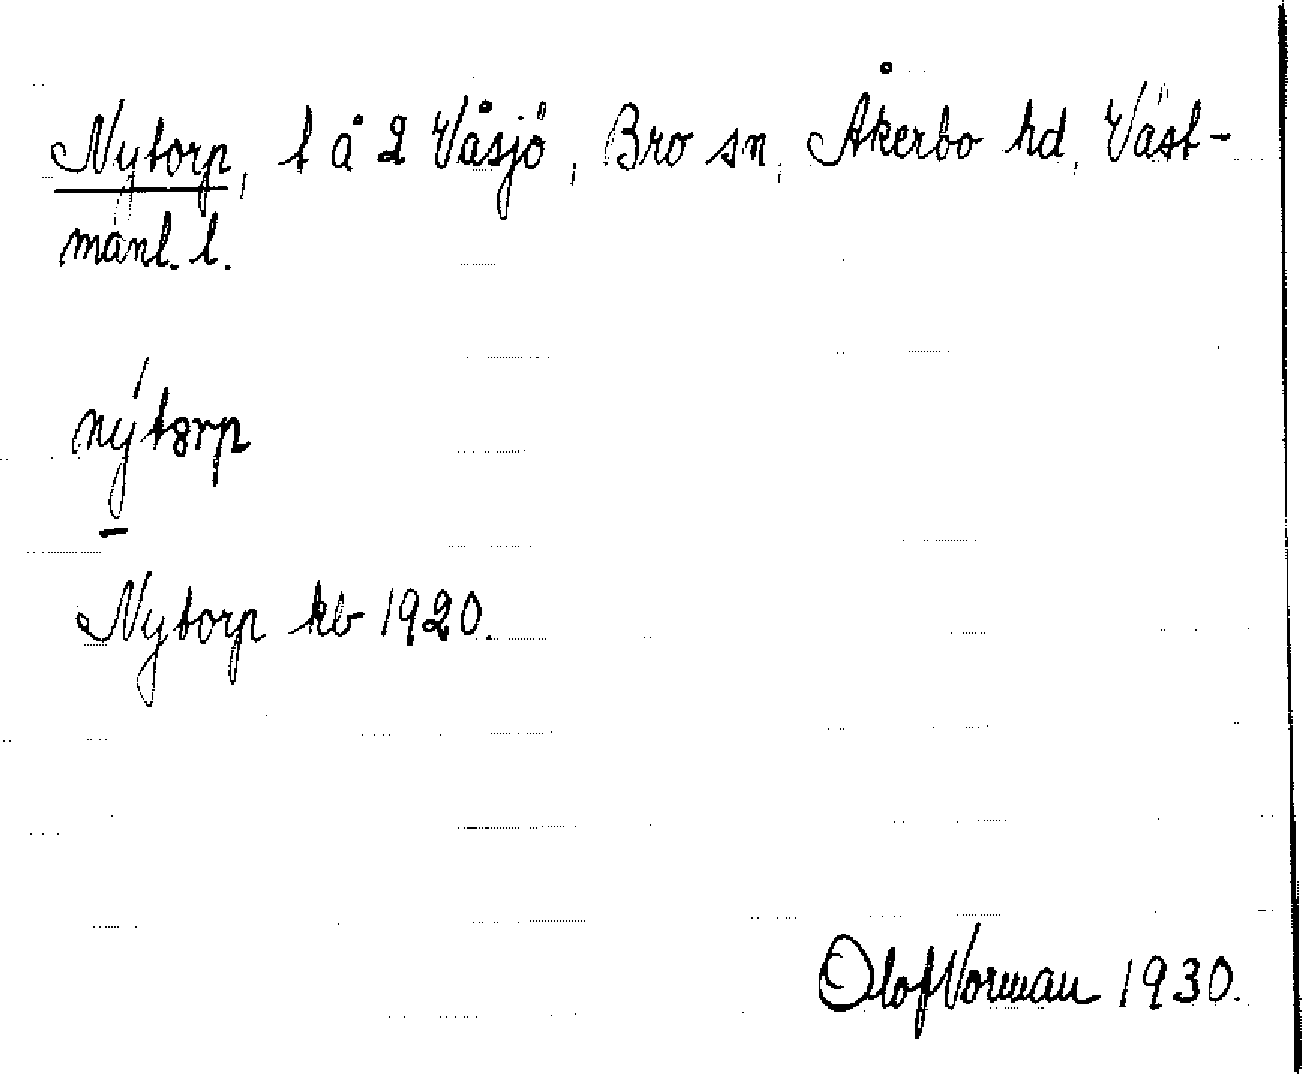 Nytorp, t å 2 Våsjö, Bro sn, Åkerbo hd, Väst-
manl. l.
nýtorp
Nytorp kb 1920.
Olof Norman 1930.